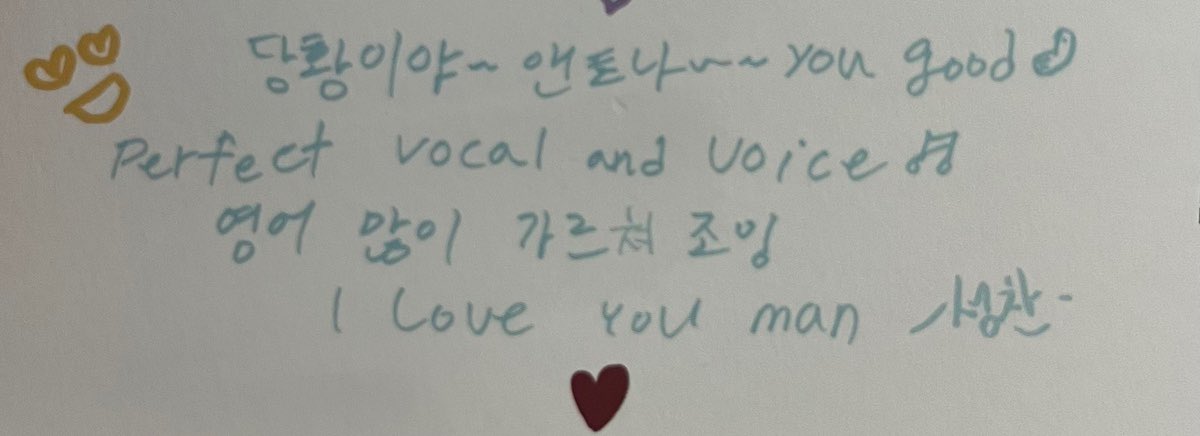 당황이야~ 앤톤나~~~ you good
Perfect vocal and voice
영어 많이 가르쳐 조잉
I love you man 성찬-